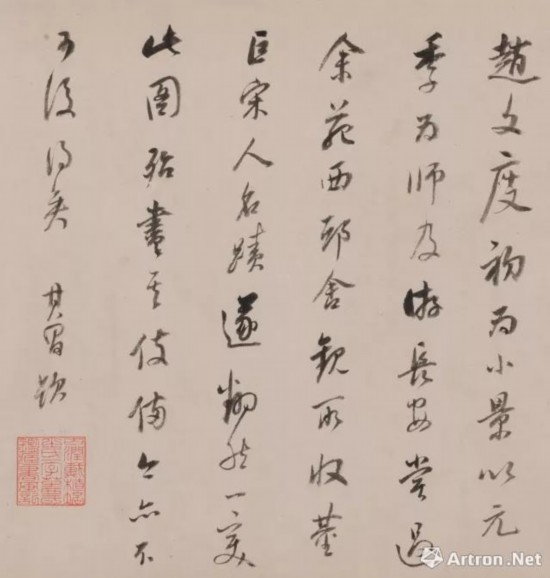 趙文度初為小景以元
季為師及游長安嘗過
余苑西邸舍觀所收董
巨宋人名蹟遂翻然一變
此圖殆盡其伎倆今亦不
可復得矣 其昌題
Artron.Net